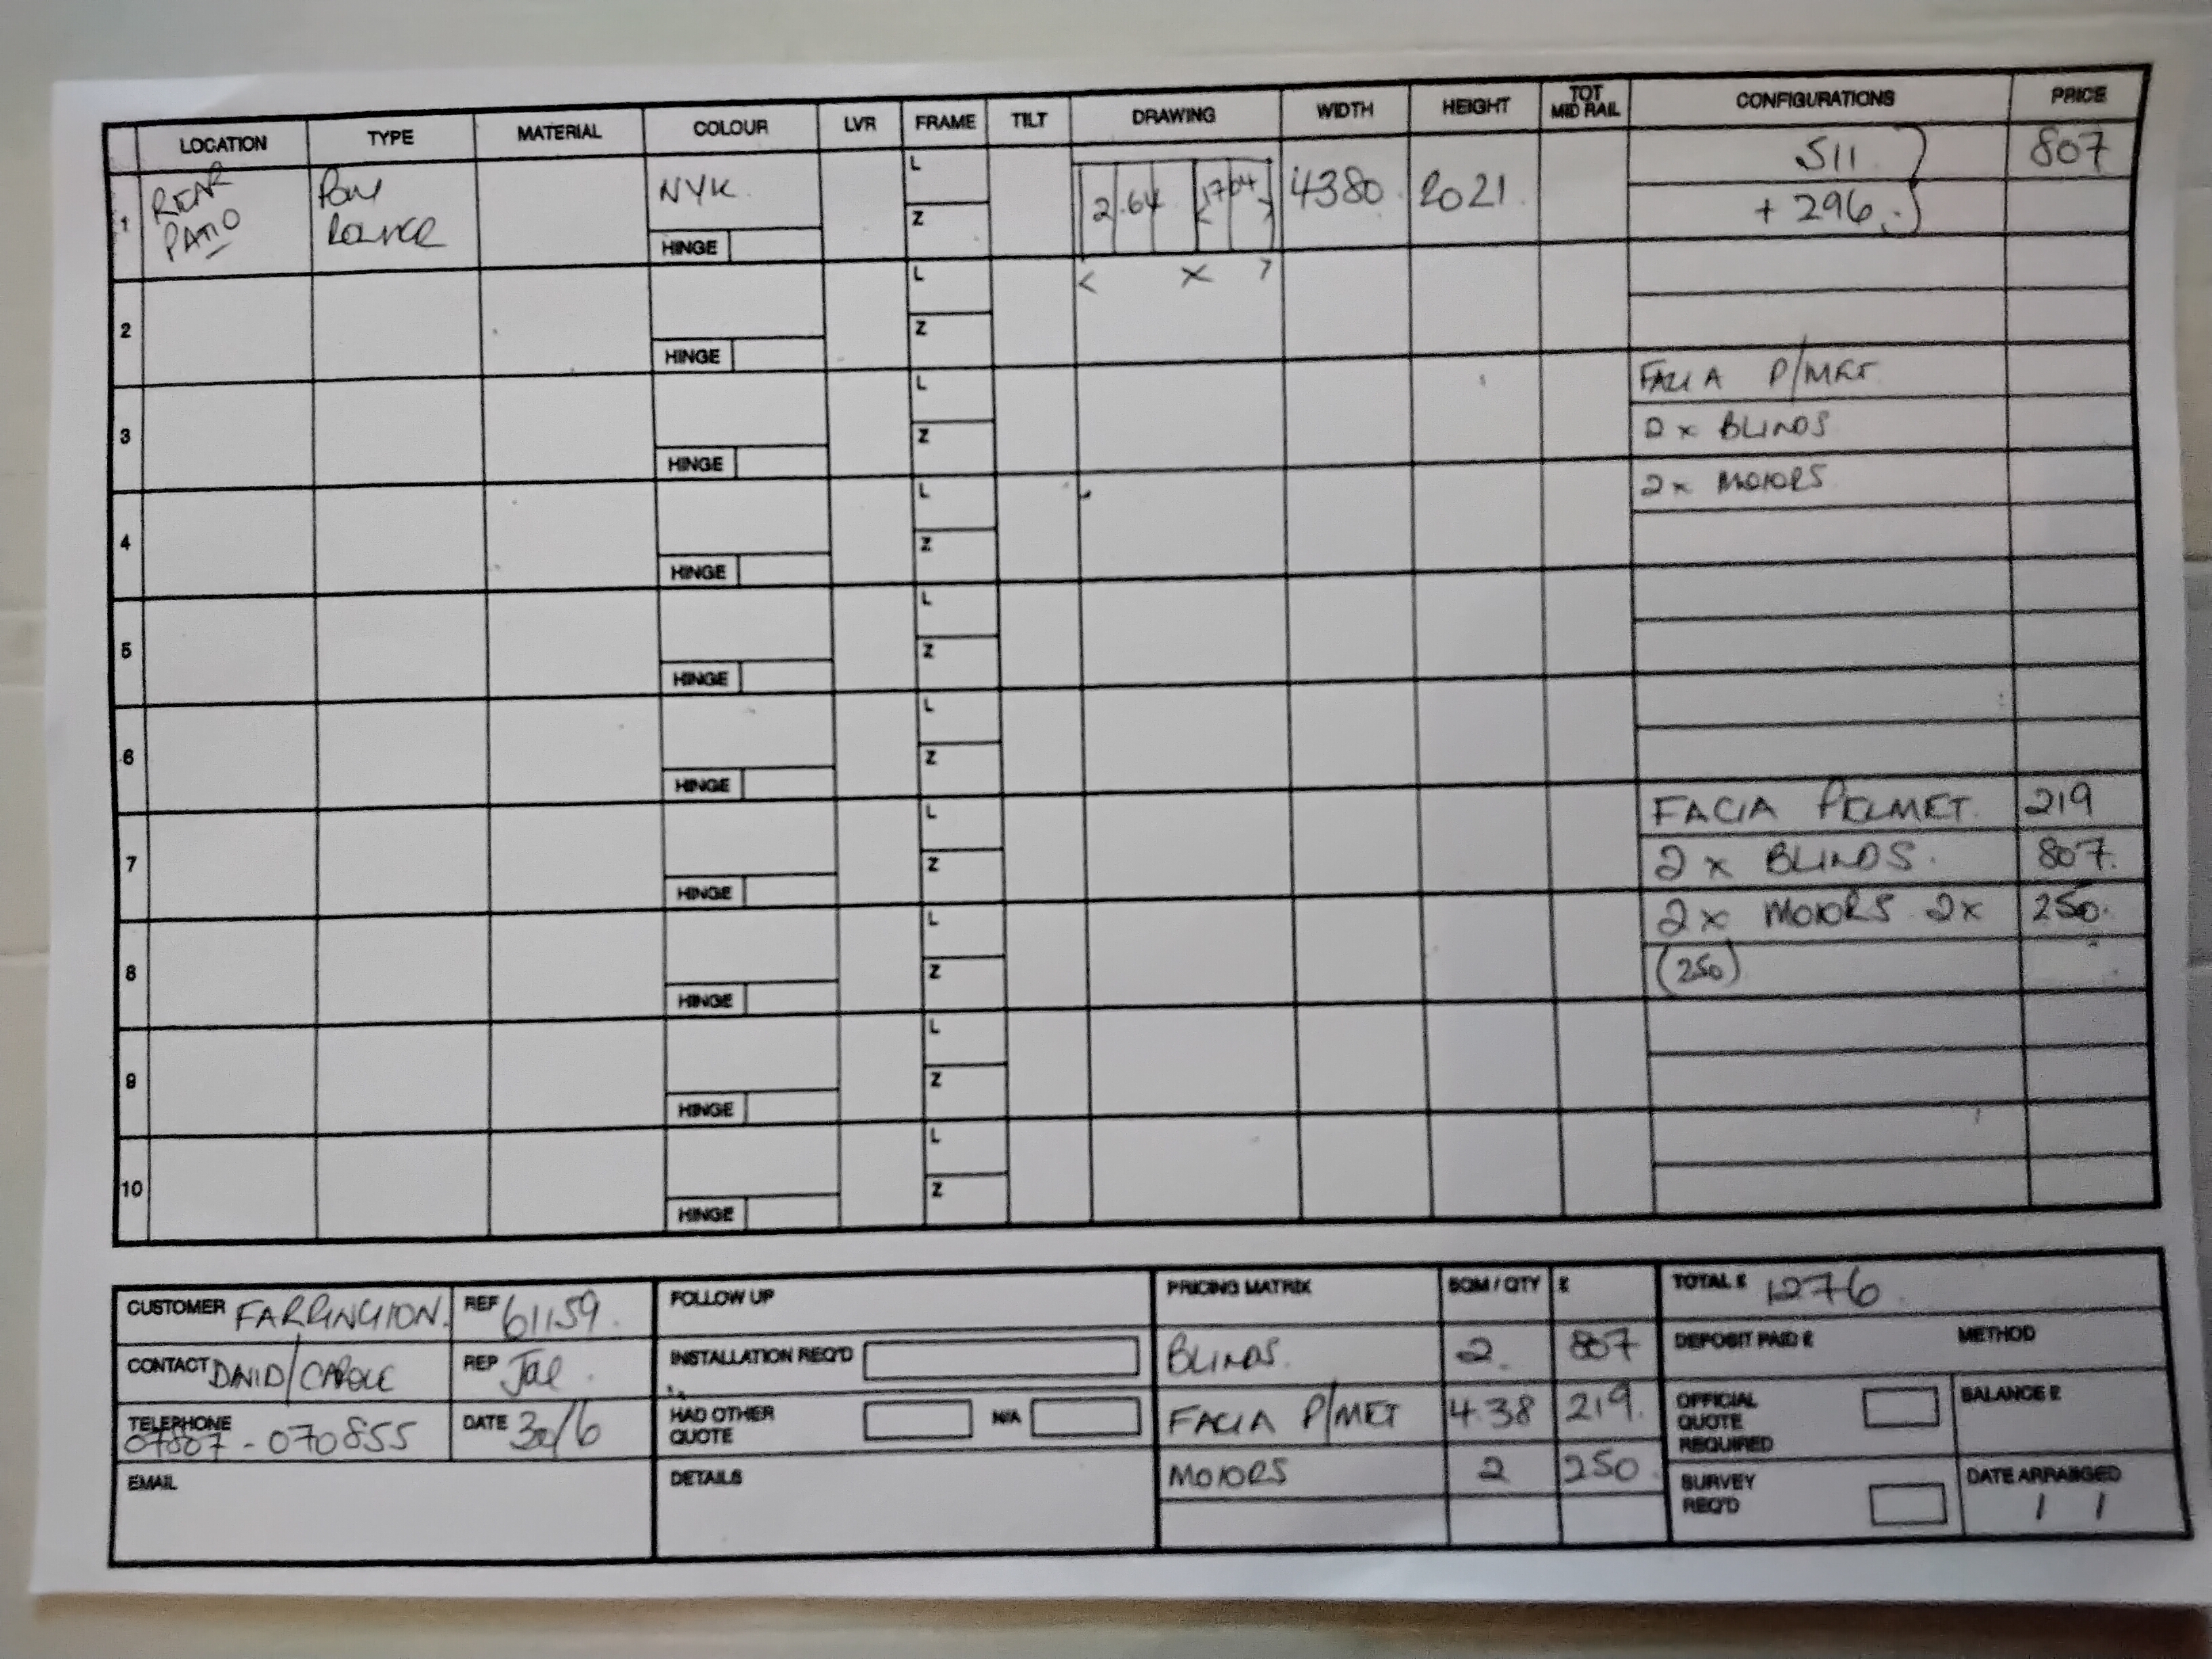 LOCATION TYPE MATERIAL COLOUR LVR FRAME TILT DRAWING WIDTH HEIGHT TOT MID RAIL CONFIGURATIONS PRICE
1 REAR PATIO NYK L Z HINGE 2.64 1704 4380 2021 511 + 296 807
< x >
2 HINGE L Z
3 HINGE L Z FACIA P/MET
2 x BLINDS
4 HINGE L Z 2 x MOTORS
5 HINGE L Z
6 HINGE L Z
7 HINGE L Z FACIA PELMET. 219
2 x BLINDS. 807.
8 HINGE L Z 2 x MOTORS 2x 250.
(250)
9 HINGE L Z
10 HINGE L Z
CUSTOMER FARRINGTON. REF 61159.
CONTACT DAVID/CAROLE REP Jae.
TELEPHONE 07807-070855 DATE 30/6
EMAIL
FOLLOW UP
INSTALLATION REQ'D
HAD OTHER QUOTE N/A
DETAILS
PRICING MATRIX SQM / QTY £
BLINDS. 2. 807
FACIA P/MET 4.38 219.
MOTORS 2 250
TOTAL £ 1276.
DEPOSIT PAID £ METHOD
OFFICIAL QUOTE REQUIRED BALANCE £
SURVEY REQ'D DATE ARRANGED
/ /